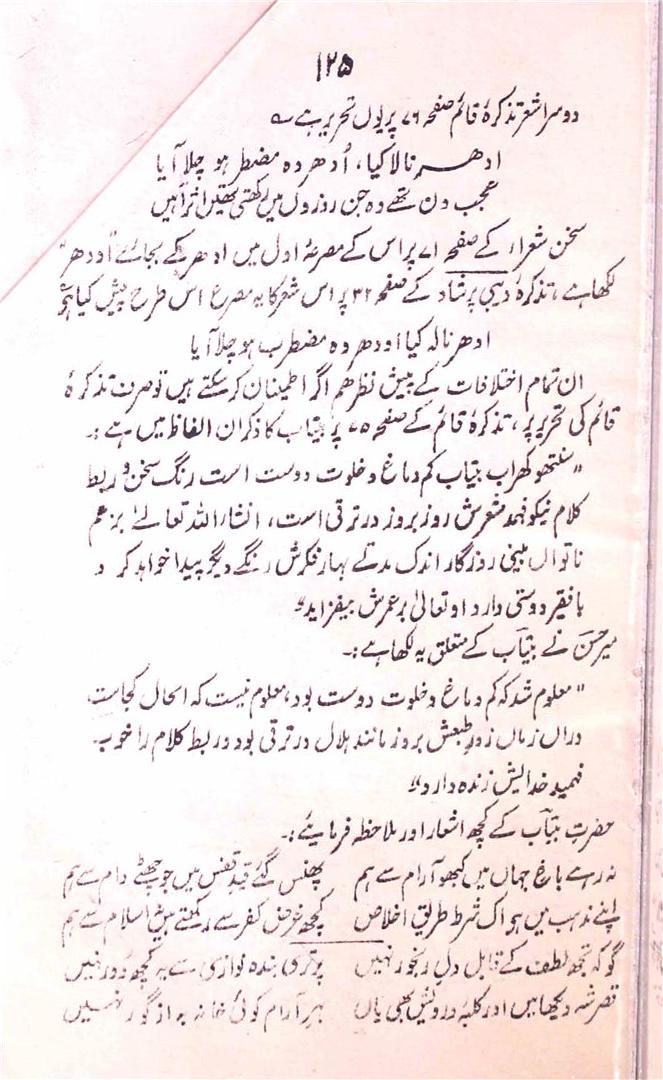 ۱۲۵
دوسرا شعر تذکرۂ قائم صفحہ ۷۶ پر یوں تحریر ہے ؎
ادھر نالا کیا، اُدھر وہ مضطر ہو چلا آیا
عجب دن تھے وہ جن روزوں میں رکھتی تھیں اثر آہیں
سخن شعراء کے صفحہ ۷۱ پر اس کے مصرعۂ اول میں ادھر کے بجائے "اودھر"
لکھا ہے، تذکرۂ دیبی پرشاد کے صفحہ ۳۲ پر اس شعر کا یہ مصرع اس طرح پیش کیا ہے
ادھر نالہ کیا اودھر وہ مضطرب ہو چلا آیا
ان تمام اختلافات کے پیش نظر ہم اگر اطمینان کر سکتے ہیں تو صرف تذکرۂ
قائم کی تحریر پر، تذکرۂ قائم کے صفحہ ۷۵ پر بیتاب کا ذکر ان الفاظ میں ہے :۔
"سنتھوکھراب بیتاب کم دماغ و خلوت دوست است رنگ سخن و ربط
کلام نیکو فہمد شعرش روز بروز در ترقی است، انشاء اللہ تعالےٰ بزعم
ناتواں بینی روزگار اندک مدتے بہار فکرش رنگے دیگر پیدا خواہد کرد و
با فقیر دوستی دارد او تعالیٰ بر عمرش بیفزاید"
میر حسن نے بیتاب کے متعلق یہ لکھا ہے :۔
"معلوم شد کہ کم دماغ و خلوت دوست بود، معلوم نیست کہ الحال کجاست
دراں زماں زورِ طبعش بروز مانند ہلال در ترقی بود و ربط کلام را خوب
فہمید خدایش زندہ دارد"
حضرت بیتاب کے کچھ اشعار اور ملاحظہ فرمایئے :۔
نہ رہے باغ جہاں میں کبھو آرام سے ہم پھنس گئے قید قفس میں جو چھٹے دام سے ہم
اپنے مذہب میں ہو اک شرط طریق اخلاص کچھ غرض کفر سے رکھتے ہیں نہ اسلام سے ہم
گو کہ تجھ لطف کے قابل دل رنجور نہیں پر تری بندہ نوازی سے یہ کچھ دور نہیں
قصر شہ دیکھا ہیں اور کلبۂ درویش بھی یاں بہر آرام کوئی خانہ بہ از گور نہیں